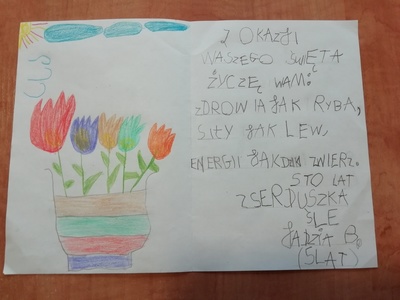 Z OKAZJI
WASZEGO ŚWIĘTA
ŻYCZĘ WAM:
ZDROWIA JAK RYBA,
SIŁY JAK LEW,
ENERGII JAK DZIK ZWIERZ.
STO LAT
Z SERDUSZKA
ŚLE
JADZIA B.
(5LAT)